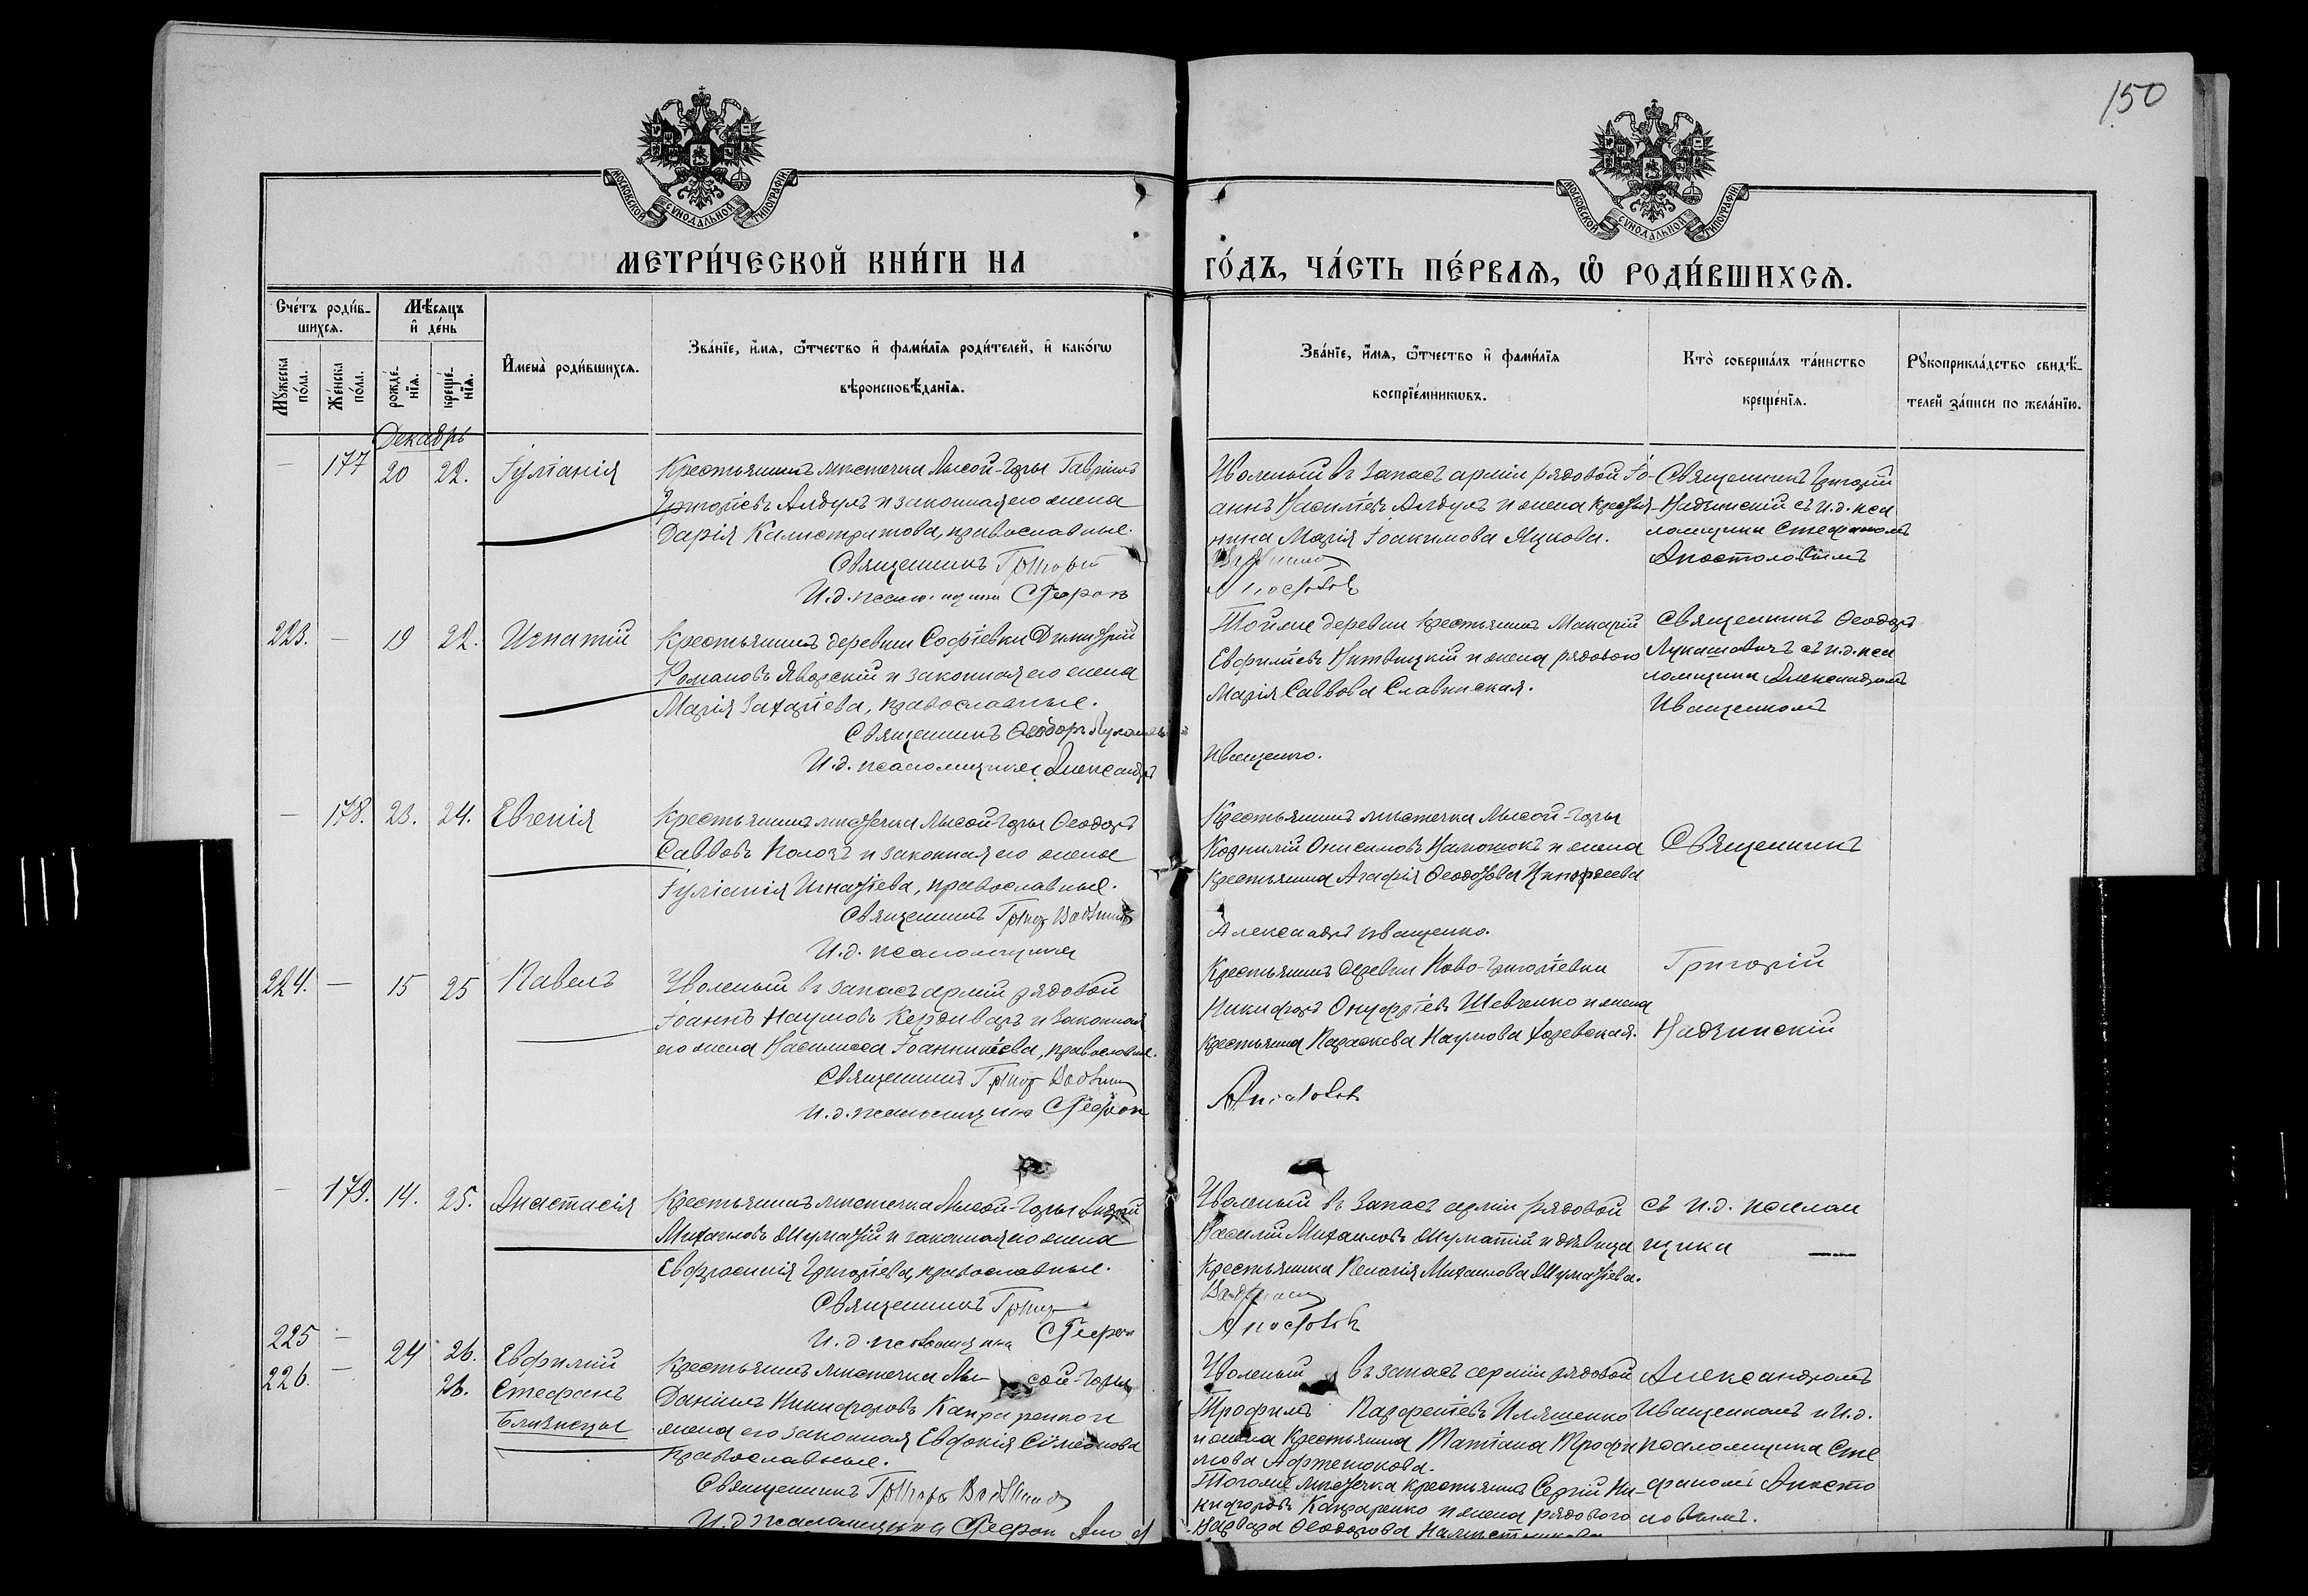 150
МОСКОВСКОЙ СѴНОДАЛЬНОЙ ТИПОГРАФІИ
МОСКОВСКОЙ СѴНОДАЛЬНОЙ ТИПОГРАФІИ
МЕТРИ́ЧЕСКОЙ КНИ́ГИ НА
ГО́ДЪ, ЧА́СТЬ ПЕ́РВАѦ, Ѡ҆ РОДИ́ВШИХСѦ.
Сче́тъ роди́в-
шихсѧ.
Мѣ́сѧцъ
и҆ де́нь
Мꙋ́жеска
по́ла.
Же́нска
по́ла.
рожде́-
нїѧ.
креще́-
нїѧ.
И҆мена̀ роди́вшихсѧ.
Зва́нїе, и҆́мѧ, ѻ҆́тчество и҆ фами́лїѧ роди́телей, и҆ како́гѡ
вѣроисповѣ́данїѧ.
Зва́нїе, и҆́мѧ, ѻ҆́тчество и҆ фами́лїѧ
воспрїе́мникѡвъ.
Кто̀ соверша́лъ та́инство
креще́нїѧ.
Рꙋкоприкла́дство свидѣ́-
телей за́писи по жела́нїю.
Декабрь
— 177 20 22. Іуліанія
Крестьянинъ мѣстечка Лысой-Горы Гавріилъ
Григоріевъ Албулъ и законная его жена
Дарія Калистратова, православные.
Священникъ Григорій
И.д. псаломщика Стефанъ
Уволенный въ запасъ арміи рядовой Іо-
аннъ Василіевъ Албулъ и жена крестья-
нина Марія Іоакимова Яцкова.
Апостоловъ
Священникъ Григорій
Надзинскій съ и.д. пса
ломщика Стефаномъ
Апостоловымъ
223. — 19 22. Игнатій
Крестьянинъ деревни Софіевки Димитрій
Романовъ Яворскій и законная его жена
Марія Захаріева, православные.
Священникъ Ѳеодоръ Лукашевичъ
И.д. псаломщика Александръ
Тойже деревни крестьянинъ Макарій
Евфиміевъ Нитвицкій и жена рядового
Марія Саввова Славинская.
Иващенко.
Священникъ Ѳеодоръ
Лукашевичъ съ и.д. пса
ломщика Александромъ
Иващенкомъ
— 178. 23. 24. Евгенія
Крестьянинъ мѣстечка Лысой-Горы Ѳеодоръ
Саввовъ Колозъ и законная его жена
Іуліанія Игнатіева, православные.
Священникъ Григ
И.д. псаломщика
Крестьянинъ мѣстечка Лысой-Горы
Корнилій Онисимовъ и жена
крестьянина Агафія Ѳеодотова
Александръ Иващенко.
Священникъ
224. — 15 25 Павелъ
Уволенный въ запасъ арміи рядовой
Іоаннъ Наумовъ Кердиваръ и законная
его жена Василисса Іоанникіева, православные.
Священникъ Григ
И.д. псаломщика Стефанъ
Крестьянинъ деревни Ново-Григоріевки
Никифоръ Онуфріевъ Шевченко и жена
крестьянина Параскева Наумова
Апостоловъ
Григорій
Надзинскій
— 179. 14. 25. Анастасія
Крестьянинъ мѣстечка Лысой-Горы Андрей
Михаиловъ Шуматій и законная его жена
Евфросинія Григоріева, православные.
Священникъ Григ
И.д. псаломщика Стефанъ
Уволенный въ запасъ арміи рядовой
Василій Михаиловъ Шуматій и дѣвица
крестьянка Пелагія Михаилова Шуматіева.
Апостоловъ
съ и.д. псалом
щика —
225 — 24 26. Евфимій
226. — 26. Стефанъ
Близнецы
Крестьянинъ мѣстечка Лы- сой-Горы
Даніилъ Никифоровъ Капаренко и
жена его законная Евдокія Сѵмеонова
православные.
Священникъ Григорій
И.д. псаломщика Стефанъ Апо
Уволенный въ запасъ арміи рядовой
Трофимъ Парфеніевъ Иляшенко
и жена крестьянина Татіана Трофи
мова Афтенюкова.
Тогоже мѣстечка крестьянинъ Сергій Ни-
кифоровъ Капаренко и жена рядового
Варвара Ѳеодорова
Александромъ
Иващенкомъ и И.д.
псаломщика Сте
фаномъ Апосто
ловымъ.